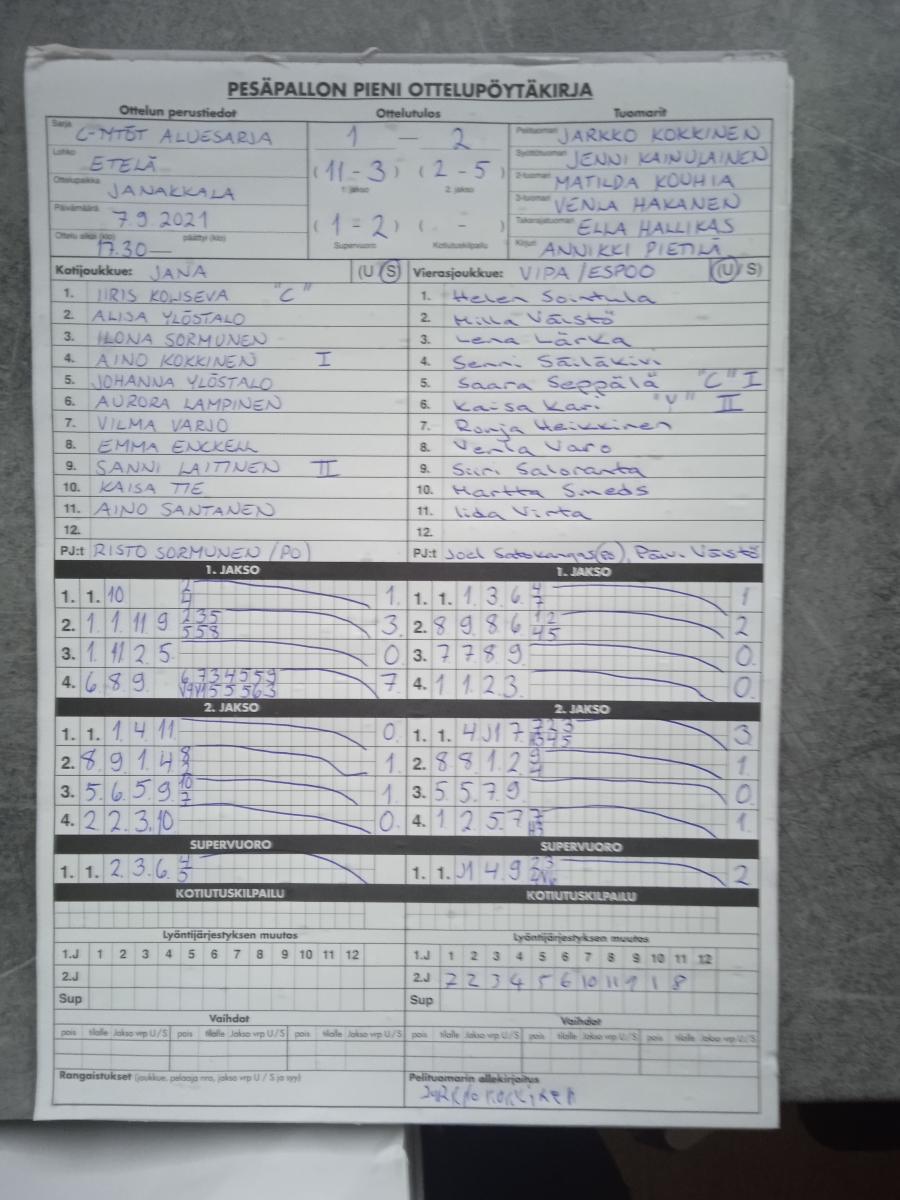 PESÄPALLON PIENI OTTELUPÖYTÄKIRJA
Ottelun perustiedot Ottelutulos Tuomarit
Sarja C-MTÖT ALUESARJA 1 — 2 Pelituomari JARKKO KOKKINEN
Lohko ETELÄ (11 - 3) (2 - 5) Syöttötuomari JENNI KAINULAINEN
Ottelupaikka JANAKKALA 1. jakso 2. jakso 2-tuomari MATILDA KOUHIA
Päivämäärä 7.9.2021 (1 - 2) ( - ) 3-tuomari VENLA HAKANEN
Ottelu alkoi (klo) 17.30 — päättyi (klo) Supervuoro Kotiutuskilpailu Takarajatuomari ELLA HALLIKAS
Kirjuri ANNIKKI PIETILÄ
Kotijoukkue: JANA (U/S) Vierasjoukkue: VIPA/ESPOO (U/S)
1. IIRIS KOLISEVA "C" 1. Helen Sointula
2. ALISA YLÖSTALO 2. Milla Väistö
3. ILONA SORMUNEN 3. Lena Lärka
4. AINO KOKKINEN I 4. Senni Säiläkivi
5. JOHANNA YLÖSTALO 5. Saara Seppälä "C" I
6. AURORA LAMPINEN 6. Kaisa Kari "V" II
7. VILMA VARJO 7. Ronja Heikkinen
8. EMMA ENCKELL 8. Venla Varo
9. SANNI LAITINEN II 9. Siiri Saloranta
10. KAISA TIE 10. Martta Smeds
11. AINO SANTANEN 11. Iida Virta
12. 12.
PJ:t RISTO SORMUNEN (PO) PJ:t Joel (PO), Päivi Väistö
1. JAKSO 1. JAKSO
1. 1. 10 2 4 1. 1. 1. 1. 3. 6. 4 7 1
2. 1. 1. 11 9 235 558 3. 2. 8 9 8 6 12 45 2
3. 1. 11 2 5. 0. 3. 7 7 8 9. 0.
4. 6. 8 9. 6734559 7. 4. 1 1 2 3. 0.
2. JAKSO 2. JAKSO
1. 1. 1. 4. 11. 0. 1. 1. 4 J1 7 3.
2. 8. 9. 1. 4. 1. 2. 8 8 1. 2. 9 4 1.
3. 5. 6. 5 9. 10 7 1. 3. 5 5. 7 9. 0.
4. 2. 2. 3. 10 0. 4. 1. 2 5. 7 1
SUPERVUORO SUPERVUORO
1. 1. 2. 3. 6. 4 5 1. 1. J1 4 9 2
KOTIUTUSKILPAILU KOTIUTUSKILPAILU
Lyöntijärjestyksen muutos Lyöntijärjestyksen muutos
1.J 1 2 3 4 5 6 7 8 9 10 11 12 1.J 1 2 3 4 5 6 7 8 9 10 11 12
2.J 2.J 7 2 3 4 5 6 10 11 9 1 8
Sup Sup
Vaihdot Vaihdot
pois tilalle Jakso vrp U/S pois tilalle Jakso vrp U/S pois tilalle Jakso vrp U/S pois tilalle Jakso vrp U/S pois tilalle Jakso vrp U/S pois tilalle Jakso vrp U/S
Rangaistukset (joukkue, pelaaja nro, jakso vrp U / S ja syy) Pelituomarin allekirjoitus
Jarkko Kokkinen